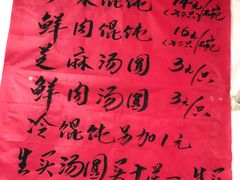 菜馄饨 14元/碗
(大二只)
鲜肉馄饨 16元/碗
芝麻汤圆 3元/只
鲜肉汤圆 3元/只
冷馄饨另加1元
生买汤圆买十送一 生买